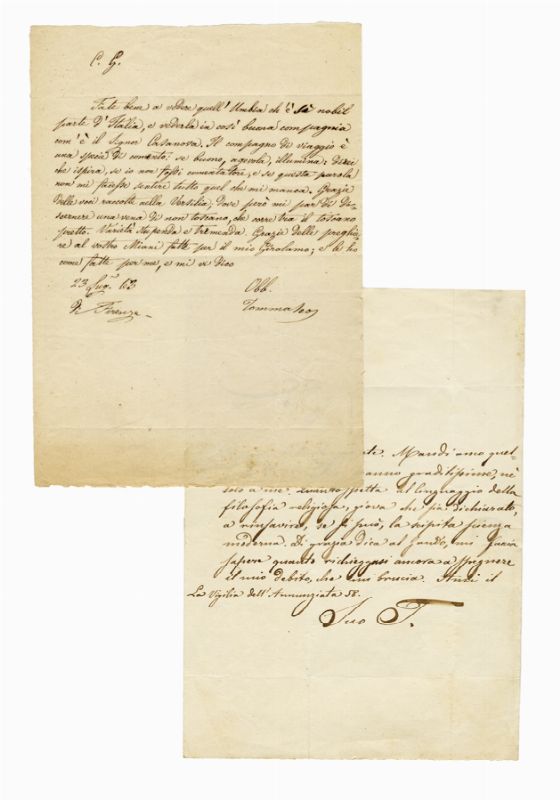 C. G.
Fate bene a vedere quell' Umbria ch'è sì nobil
parte d'Italia, e vederla in così buona compagnia
com'è il Signor Casanova. Il compagno di viaggio è
una specie di comento; se buono, agevola, illumina; direi
che ispira, se io non fossi comentatore, e se questa parola
non mi facesse sentire tutto quel che mi manca. Grazie
delle voci raccolte nella Versilia; dove però mi par di di-
scernere una vena di non toscano, che corre tra il toscano
pretto. Varietà stupenda e tremenda. Grazie delle preghie-
re al vostro Miani fatte per il mio Girolamo; e le ho
come fatte per me, e mi vi dico
23 Lug. 63
Di Firenze
Obb.
Tommaseo
Mandi amo quel-
anno graditissime, nè
solo a me. Quanto spetta al linguaggio della
filosofia religiosa, giova che sia dichiarato,
a rinsavire, se si può, la scipita scienza
moderna. Di grazia dica al mi faccia
sapere quanto richieggasi ancora a spegnere
il mio debito, che mi brucia. Ami il
La Vigilia dell'Annunziata 58.
Suo T.